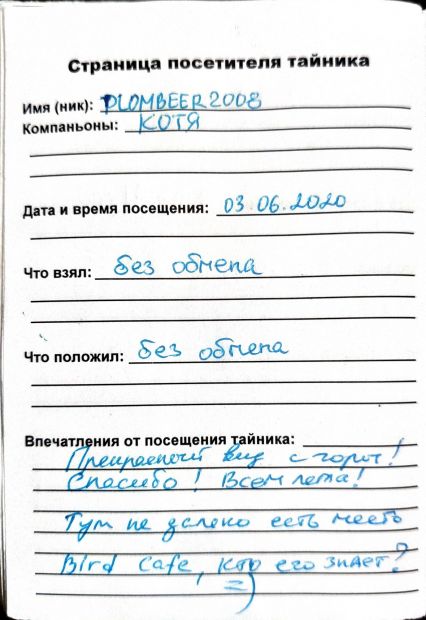 Страница посетителя тайника
Имя (ник): PLOMBEER2008
Компаньоны: КОТЯ
Дата и время посещения: 03.06.2020
Что взял: без обмена
Что положил: без обмена
Впечатления от посещения тайника:
Прекрасный вид с горы!
Спасибо! Всем лета!
Тут не далеко есть место
Bird Cafe, кто его знает?
=)